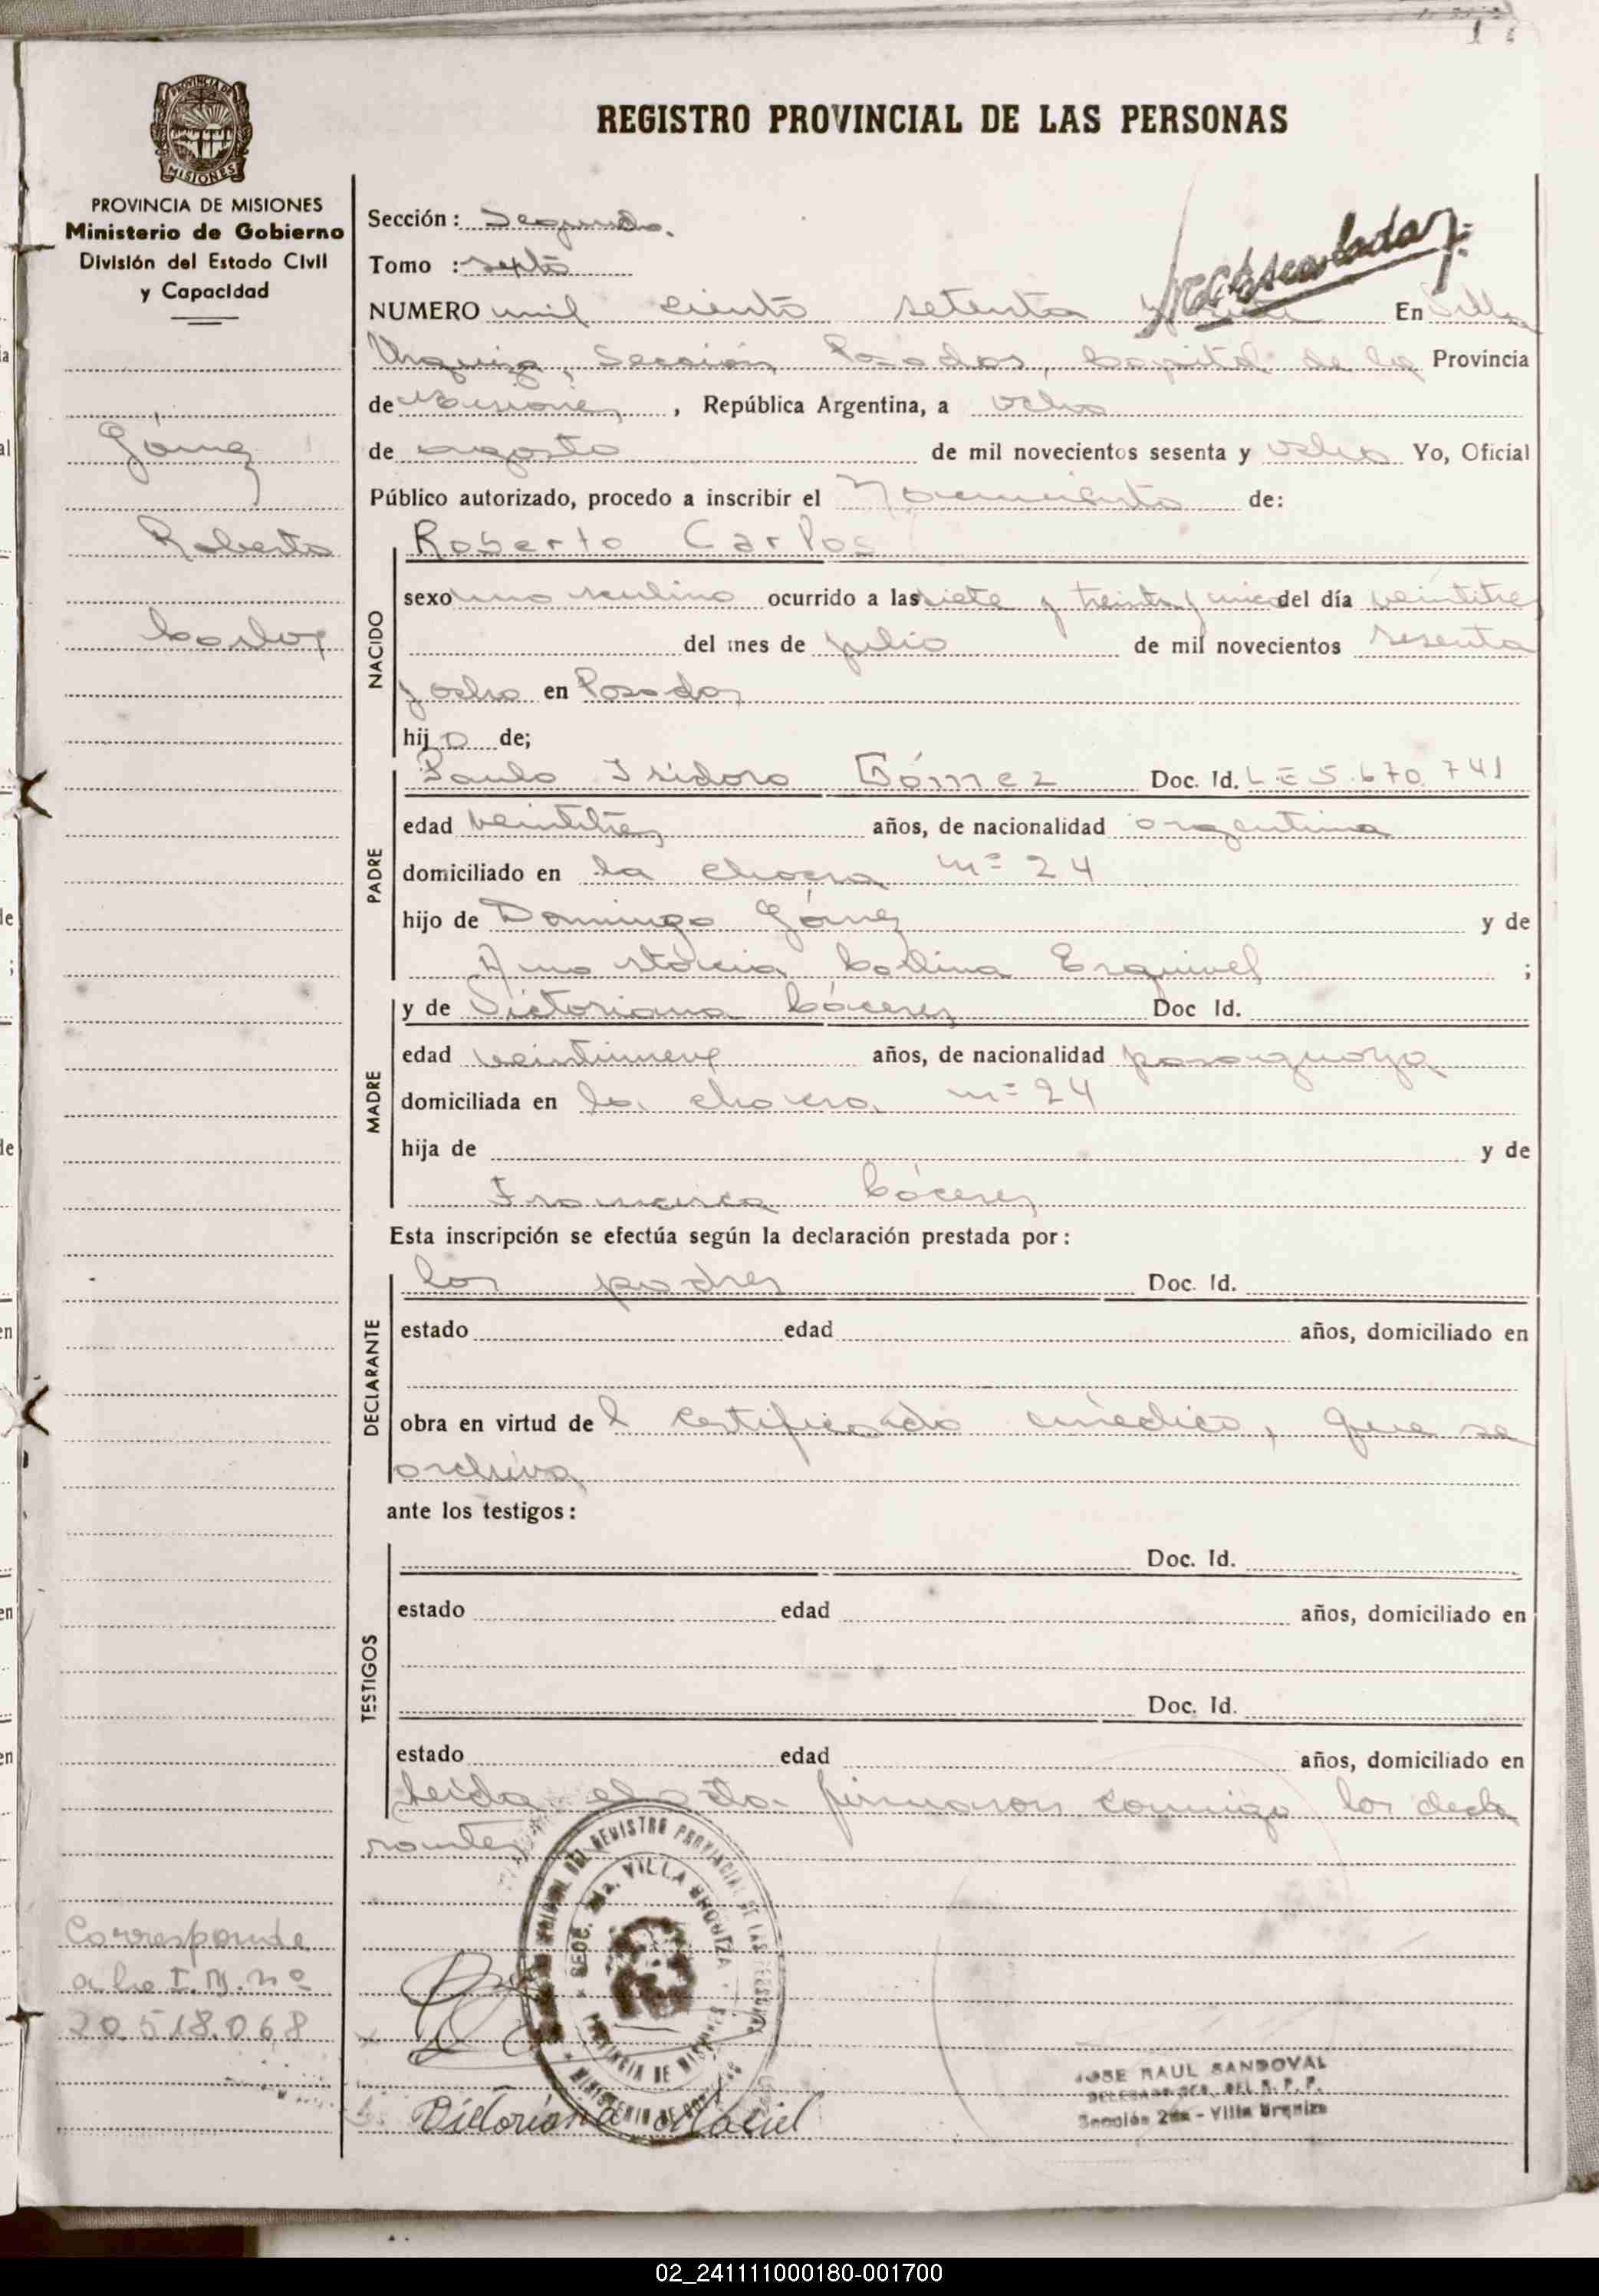 REGISTRO PROVINCIAL DE LAS PERSONAS
PROVINCIA DE MISIONES
Ministerio de Gobierno
División del Estado Civil
y Capacidad
Gómez
Roberto
Carlos
Sección: Segunda.
Tomo : septo
NUMERO mil ciento setenta y En Villa
Urquiza, Sección Posadas, Capital de la Provincia
de Misiones, República Argentina, a ocho
de agosto de mil novecientos sesenta y ocho Yo, Oficial
Público autorizado, procedo a inscribir el Nacimiento de:
NACIDO
Roberto Carlos
sexo masculino ocurrido a las siete y treinta y cinco del día veintitres
del mes de julio de mil novecientos sesenta
y ocho en Posadas
hijo de;
PADRE
Paulo Isidoro Gómez Doc. Id. L E 5.670.741
edad veintitres años, de nacionalidad argentina
domiciliado en la chacra nº 24
hijo de Domingo Gómez y de
Anastacia Carlina Esquivel ;
MADRE
y de Victoriana Cáceres Doc Id.
edad veintinueve años, de nacionalidad paraguaya
domiciliada en la chacra nº 24
hija de y de
Francisca Cáceres
Esta inscripción se efectúa según la declaración prestada por:
DECLARANTE
los padres Doc. Id.
estado edad años, domiciliado en
obra en virtud del certificado médico, que se
archiva
ante los testigos:
TESTIGOS
Doc. Id.
estado edad años, domiciliado en
Doc. Id.
estado edad años, domiciliado en
Leída el acta firmaron conmigo los decla
rantes
Corresponde
a la I.M. nº
20.518.068
DEL REGISTRO PROVINCIAL DE LAS PERSONAS
SECC. 2da. VILLA URQUIZA
PROVINCIA DE MISIONES
MINISTERIO DE GOBIERNO
Victoriana Maciel
JOSE RAUL SANDOVAL
DEL R. P. P.
Sección 2da - Villa Urquiza
02_241111000180-001700